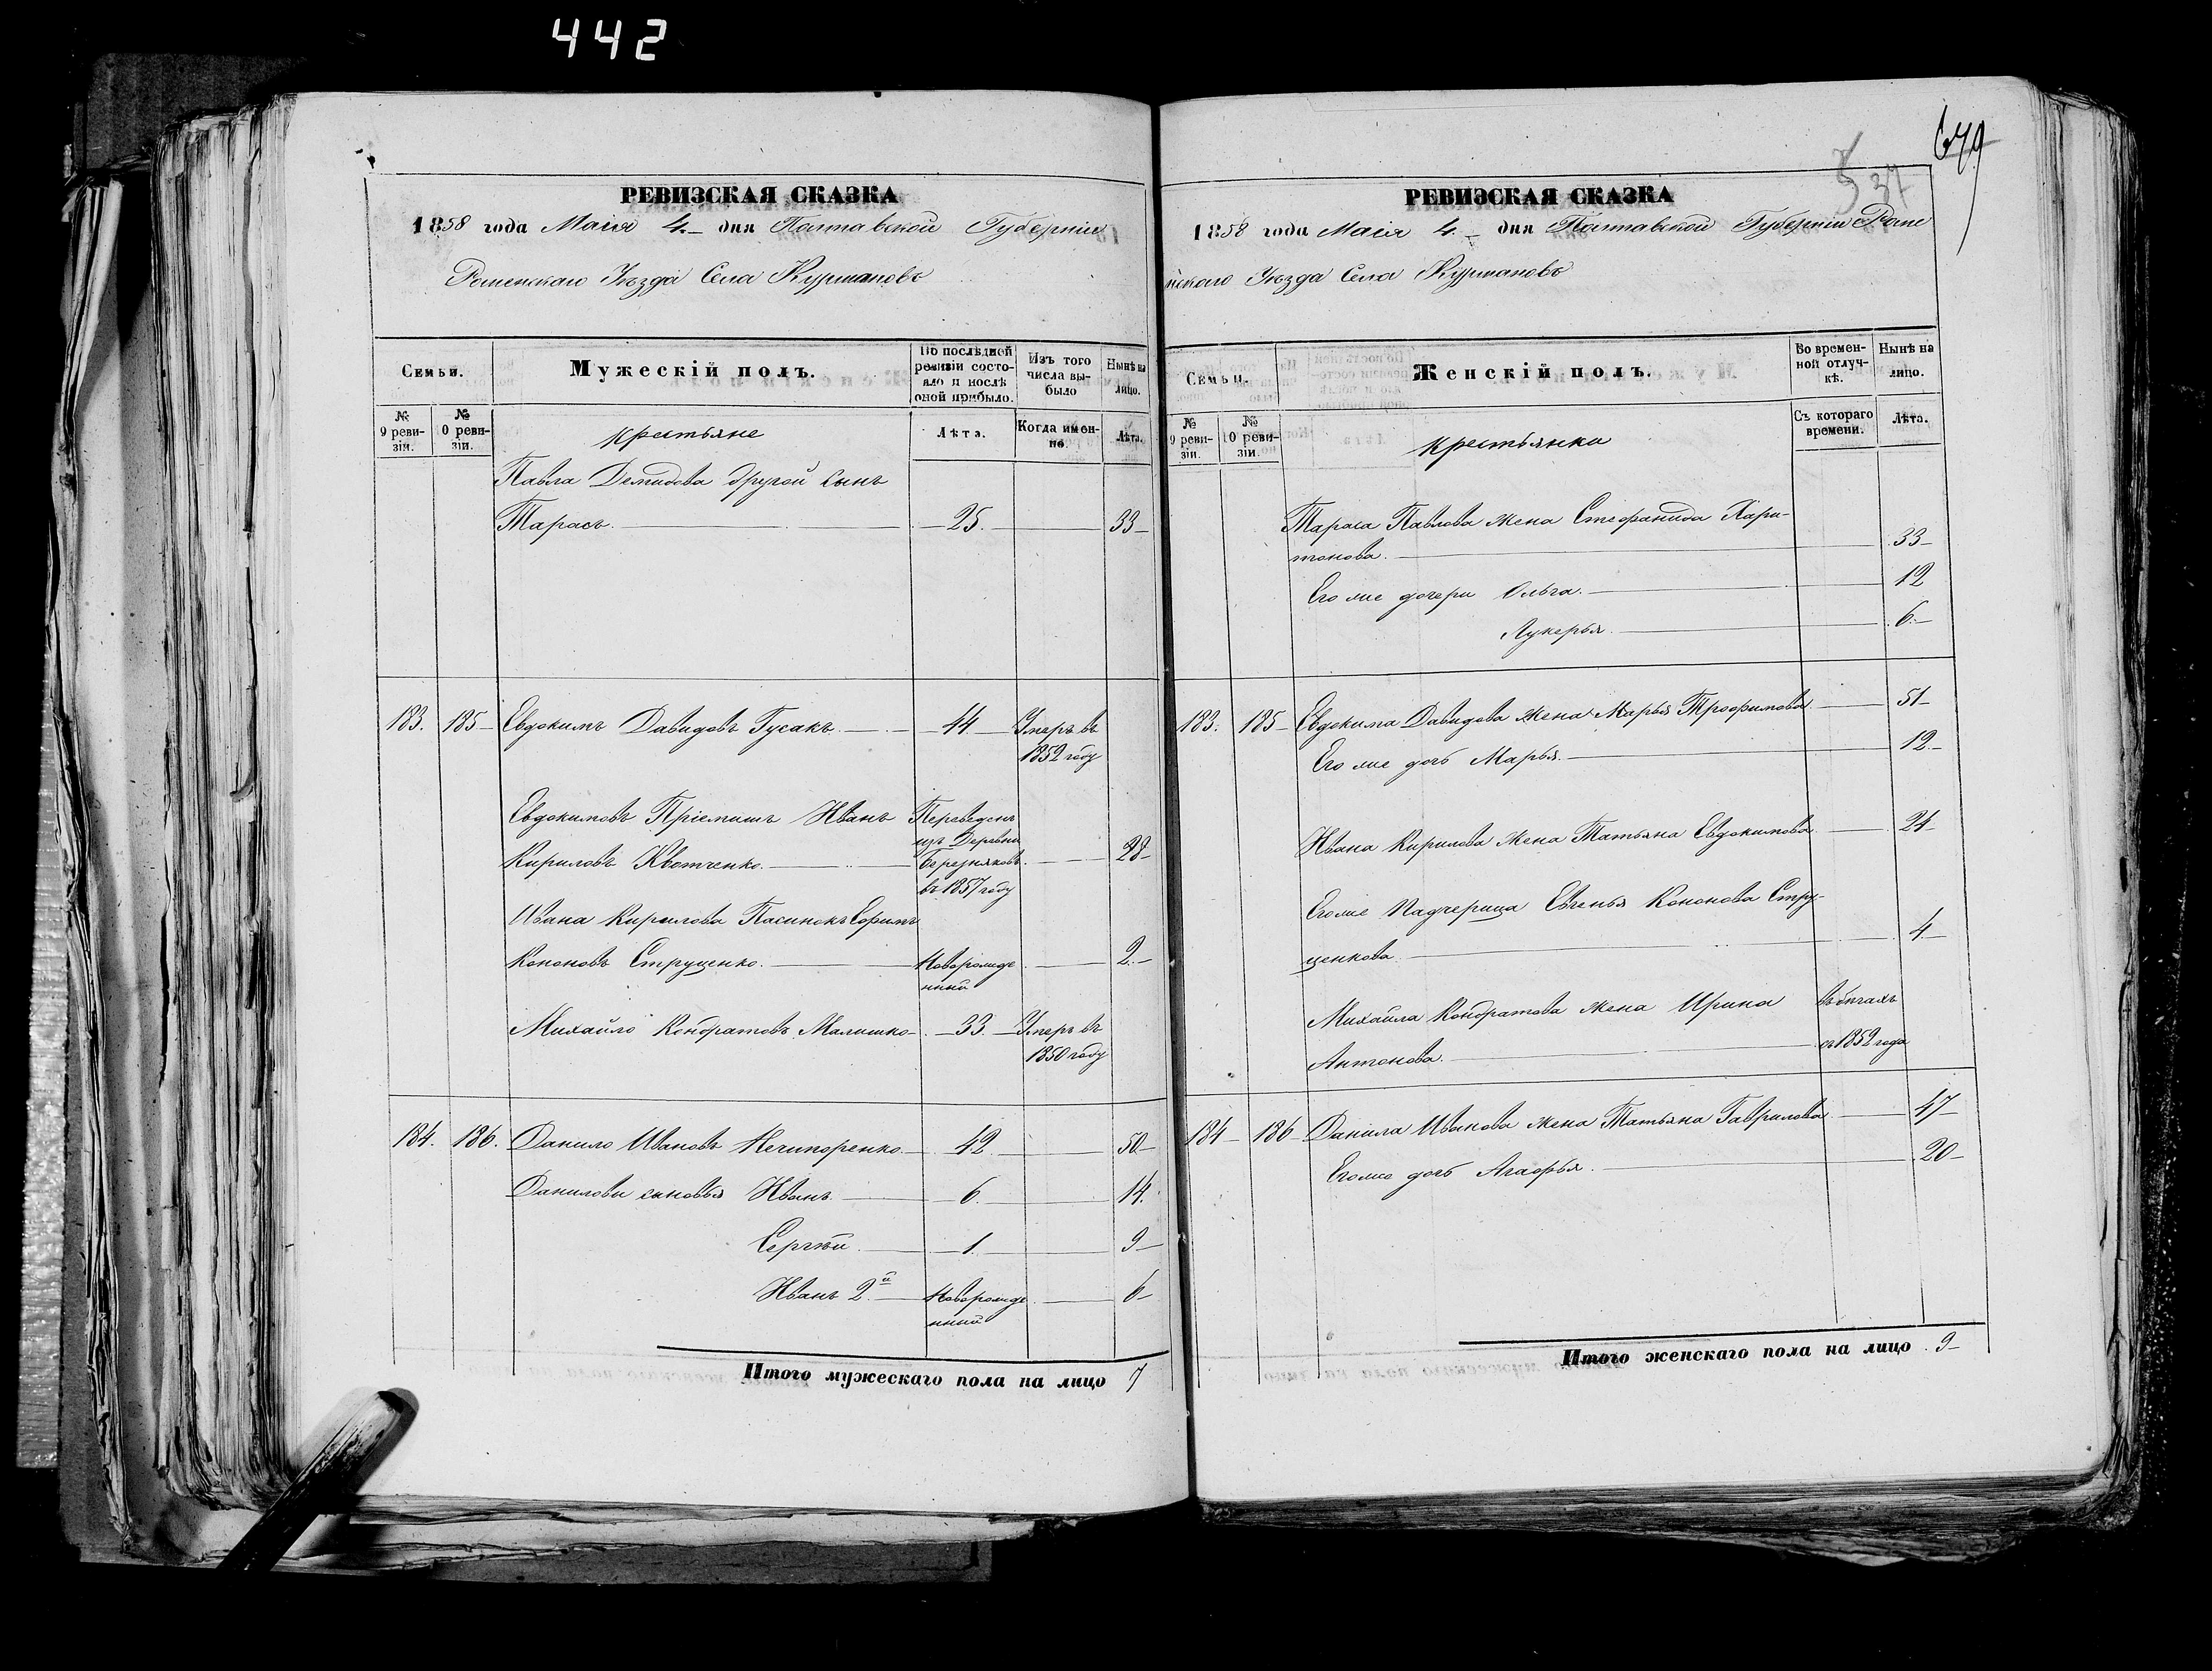 442
679
537
РЕВИЗСКАЯ СКАЗКА
1858 года Маія 4.– дня Полтавской Губерніи
Роменскаго Уѣзда Села Курмановъ
Семьи.
Мужескій полъ.
По послѣдней ревизіи состояло и послѣ оной прибыло.
Изъ того числа выбыло
Нынѣ на лицо.
№ 9 ревизіи.
№ 10 ревизіи.
крестьяне
Лѣта.
Когда именно.
Лѣта.
Павла Демидова другой сынъ
Тарасъ. — 25. — 33–
183. 185– Евдокимъ Давидовъ Гусакъ. — 44. — Умеръ въ
1852 году
Евдокимовъ Пріемышъ Иванъ Переведенъ
изъ Деревни
Кириловъ Квотченко. — Березняковъ. — 28–
въ 1857 году
Ивана Кирилова Пасинокъ Ефимъ
Кононовъ Струценко. — Новорожде — 2.–
нный
Михайло Кондратовъ Малишко– 33. — Умеръ въ
1850 году
184. 186. Данило Ивановъ Нечипоренко. — 42. — 50–
Данилови сыновья Иванъ — 6. — 14.
Сергѣй. — 1. — 9–
Иванъ 2й — Новорожде — 6–
нный
Итого мужескаго пола на лицо 7
РЕВИЗСКАЯ СКАЗКА
1858 года Маія 4.– дня Полтавской Губерніи Роме
нскаго Уѣзда Села Курмановъ
Семьи.
Женскій полъ.
Во временной отлучкѣ.
Нынѣ на лицо.
№ 9 ревизіи.
№ 10 ревизіи.
крестьянки
Съ котораго времени.
Лѣта.
Тараса Павлова жена Стефанида Хари-
тонова. — 33–
Его же дочери Ольга. — 12
Лукерья. — 6.–
183. 185– Евдокима Давидова жена Марья Трофимова — 51–
Его же дочь Марья. — 12–
Ивана Кирилова жена Татьяна Евдокимова — 24–
Его же Падчерица Евгенья Кононова Стру-
ценкова — 4.–
Михайла Кондратова жена Ирина въ бѣгахъ
Антонова. — съ 1852 года
184– 186– Данила Иванова жена Татьяна Гаврилова — 47–
Его же дочь Агафья. — 20–
Итого женскаго пола на лицо 9–